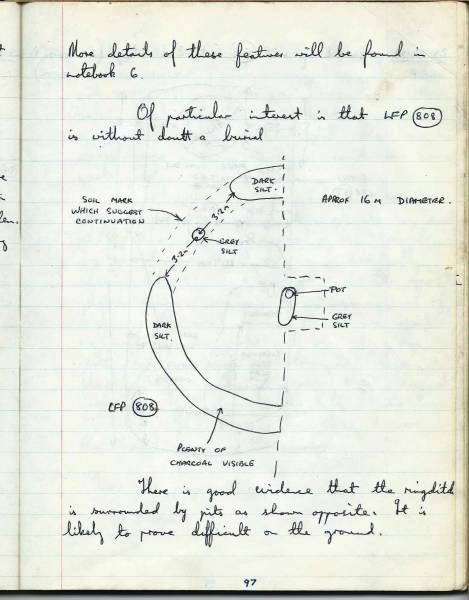 More details of these features will be found in
notebook 6.
Of particular interest is that LFP 808
is without doubt a burial
DARK
SILT.
SOIL MARK
WHICH SUGGEST
CONTINUATION
3.2m
APPROX 16 M DIAMETER.
GREY
SILT
3.2m
POT
GREY
SILT
DARK
SILT.
LFP 808
PLENTY OF
CHARCOAL VISIBLE
There is good evidence that the ringditch
is surrounded by pits as shown opposite. It is
likely to prove difficult on the ground.
97